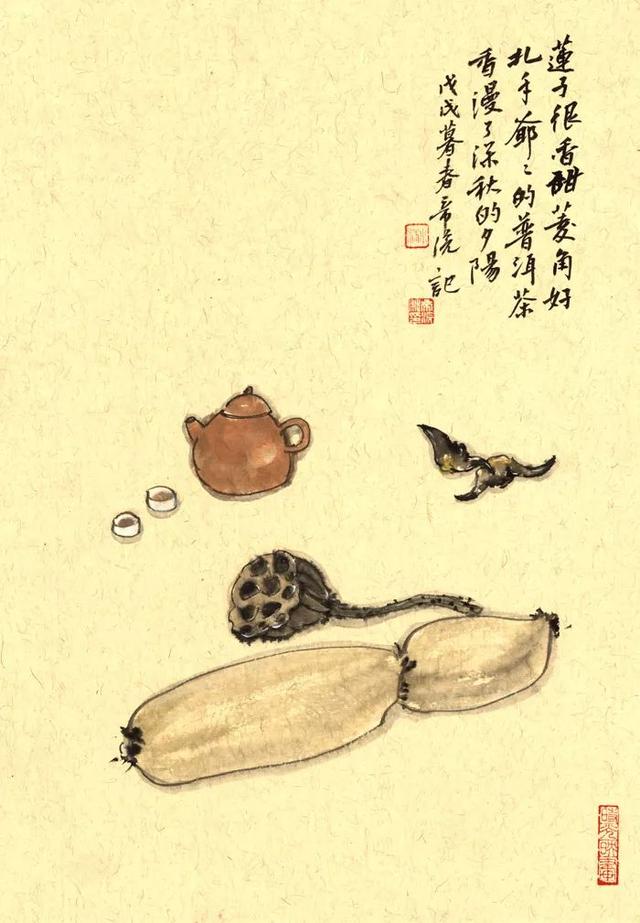 蓮子很香甜菱角好
扎手爺〻的普洱茶
香漫了深秋的夕陽
戊戌暮春希浣記